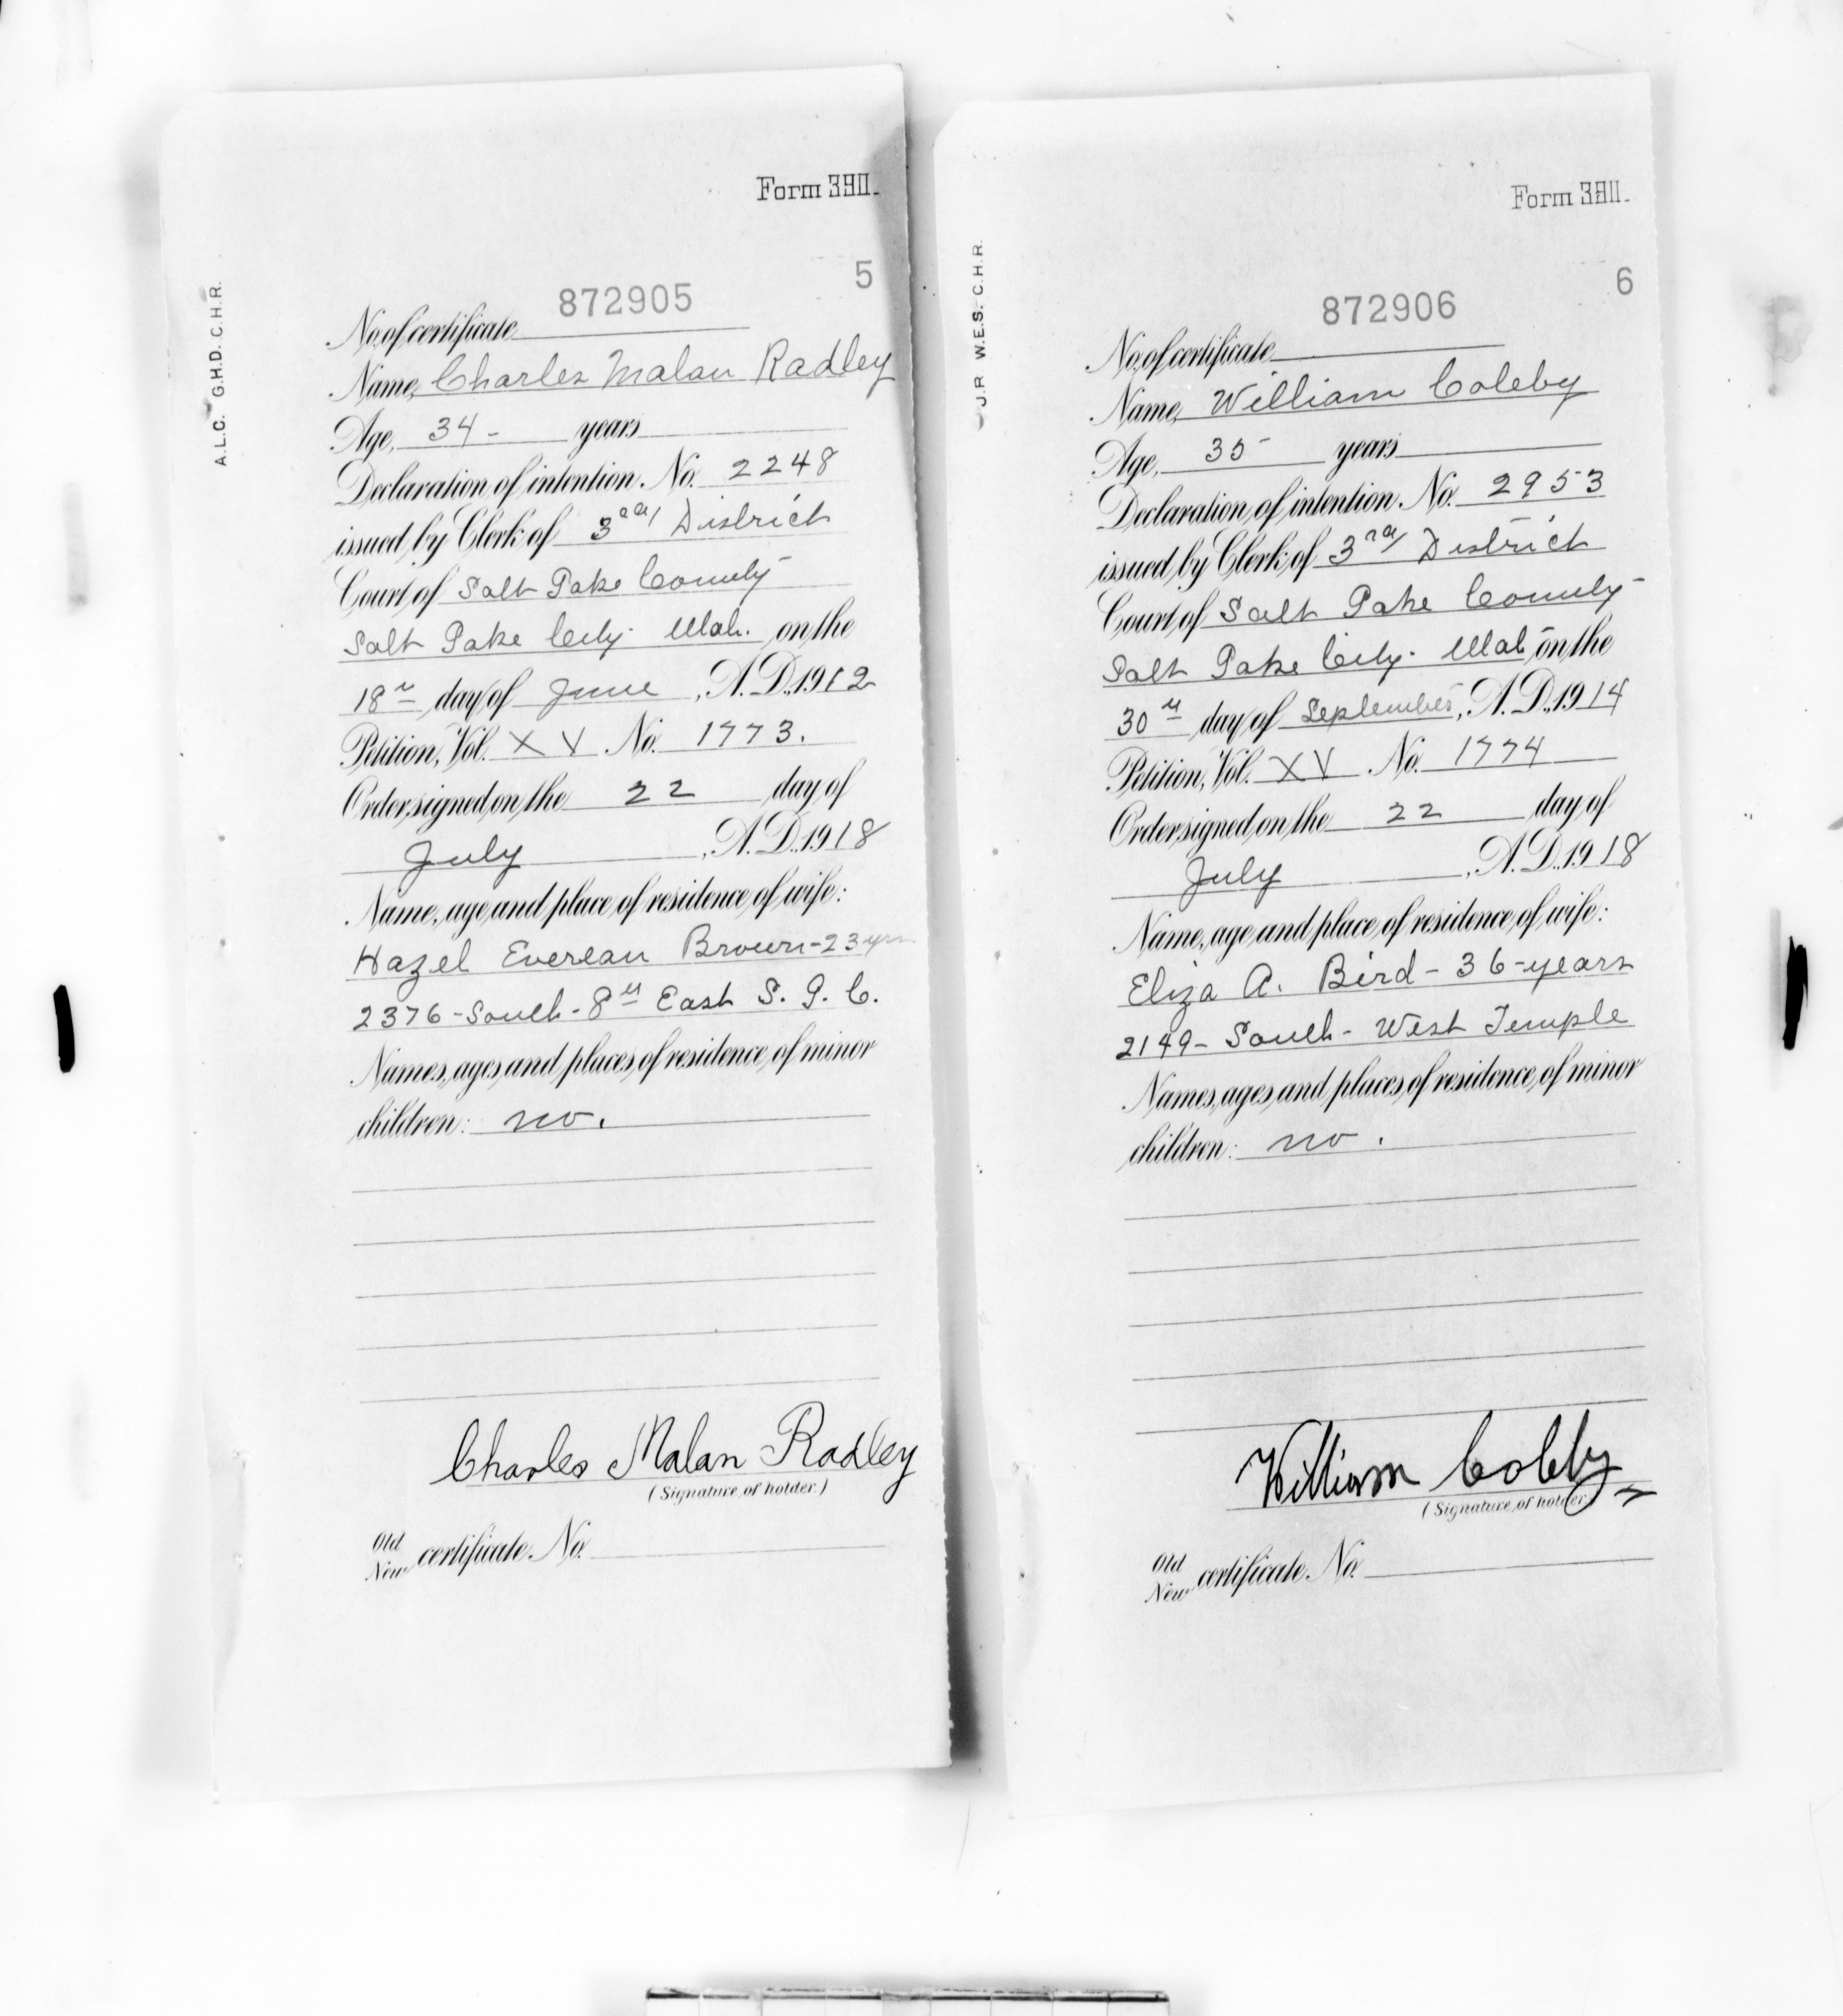 Form 390.
5
A.L.C. G.H.D. C.H.R.
No. of certificate 872905
Name, Charles Malan Radley
Age, 34 - years
Declaration of intention No. 2248
issued by Clerk of 3rd District
Court of Salt Lake County
Salt Lake City. Utah. on the
18th day of June, A.D. 1912
Petition, Vol. XV No. 1773.
Order signed on the 22 day of
July, A.D. 1918
Name, age and place of residence of wife:
Hazel Brown - 23 yrs
2376 - South - 8th East S. L. C.
Names, ages and places of residence of minor
children: no.
Charles Malan Radley
(Signature of holder.)
Old
New certificate No.
Form 390.
6
J.R W.E.S. C.H.R.
No. of certificate 872906
Name, William Coleby
Age, 35 years
Declaration of intention No. 2953
issued by Clerk of 3rd District
Court of Salt Lake County
Salt Lake City. Utah on the
30th day of September, A.D. 1914
Petition, Vol. XV No. 1774
Order signed on the 22 day of
July, A.D. 1918
Name, age and place of residence of wife:
Eliza A. Bird - 36 - years
2149 - South - West Temple
Names, ages and places of residence of minor
children: no.
William Coleby
(Signature of holder.)
Old
New certificate No.